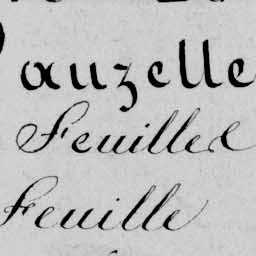 auzelle
Feuillee
Feuille